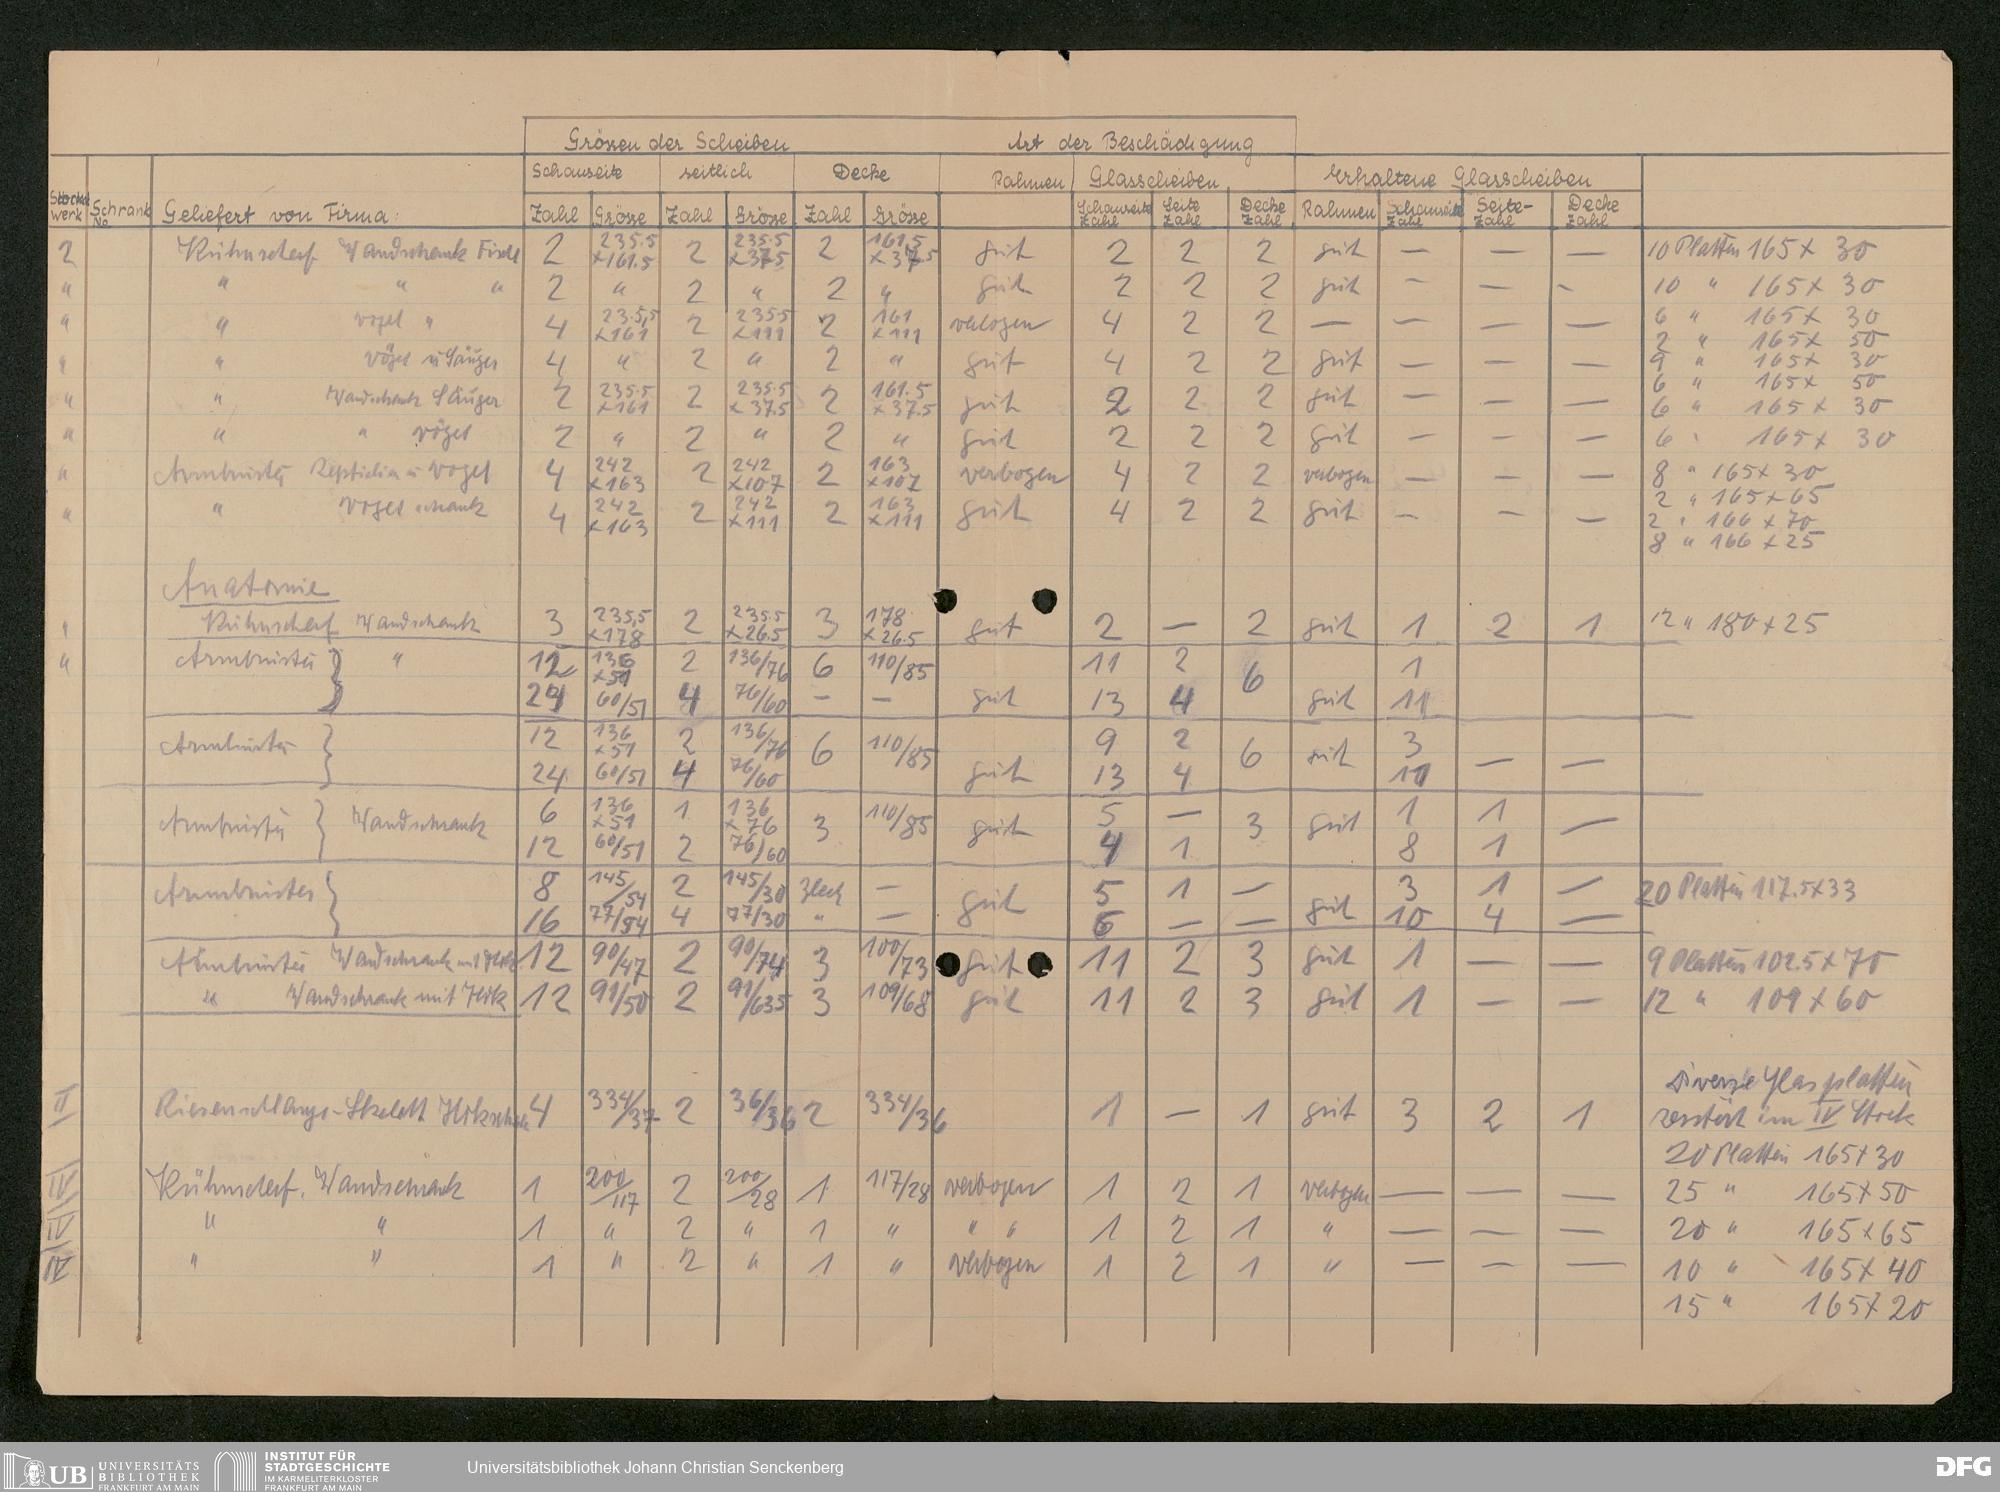 Grössen der Scheiben Art der Beschädigung
Schauseite seitlich Decke Rahmen Glasscheiben Erhaltene Glasscheiben
Stockwerk Schrank No Geliefert von Firma: Zahl Grösse Zahl Grösse Zahl Grösse Schauseite Zahl Seite Zahl Decke Zahl Rahmen Schauseite Zahl Seite-Zahl Decke Zahl
2 Kühnscherf Wandschrank Fische 2 235.5 x161.5 2 235.5 x37.5 2 161.5 x37.5 gut 2 2 2 gut — — — 10 Platten 165x 30
" " " " 2 " 2 " 2 " gut 2 2 2 gut — — - 10 " 165x 30
" " Vögel " 4 235,5 x161 2 235.5 x111 2 161 x111 verbogen 4 2 2 — — — — 6 " 165x 30
2 " 165x 50
" " Vögel u Säuger 4 " 2 " 2 " gut 4 2 2 gut — — — 9 " 165x 30
6 " 165x 50
" " Wandschrank Säuger 2 235.5 x161 2 235.5 x37.5 2 161.5 x37.5 gut 2 2 2 gut — — — 6 " 165x 30
" " " Vögel 2 " 2 " 2 " gut 2 2 2 gut — — — 6 " 165x 30
" Armbruster Reptilien u Vögel 4 242 x163 2 242 x107 2 163 x107 verbogen 4 2 2 verbogen — — — 8 " 165x30
2 " 165x65
" " Vogelschrank 4 242 x163 2 242 x111 2 163 x111 gut 4 2 2 gut — — — 2 " 166x70
8 " 166x25
Anatomie
" Kühnscherf Wandschrank 3 235,5 x178 2 235.5 x26.5 3 178 x26.5 gut 2 — 2 gut 1 2 1 12 " 180x25
" Armbruster } " 12 136 x51 2 136/76 6 110/85 11 2 6 1
24 60/51 4 76/60 — — gut 13 4 gut 11
Armbruster } 12 136 x51 2 136/76 6 110/85 9 2 6 gut 3
24 60/51 4 76/60 gut 13 4 10 — —
Armbruster } Wandschrank 6 136 x51 1 136 x76 3 110/85 gut 5 — 3 gut 1 1 —
12 60/51 2 76/60 4 1 8 1
Armbruster } 8 145/54 2 145/30 Blech — gut 5 1 — 3 1 — 20 Platten 117.5x33
16 77/54 4 77/30 " — 6 — — gut 10 4 —
Armbruster Wandschrank mit Holz 12 90/47 2 90/74 3 100/73 gut 11 2 3 gut 1 — — 9 Platten 102.5x70
" Wandschrank mit Holz 12 91/50 2 91/635 3 109/68 gut 11 2 3 gut 1 — — 12 " 109x60
Diverse Glasplatten
II Riesenschlange-Skelett Holzschrank 4 334/37 2 36/36 2 334/36 1 — 1 gut 3 2 1 zerstört im IV Stock
20 Platten 165x30
IV Kühnscherf. Wandschrank 1 200/117 2 200/28 1 117/28 verbogen 1 2 1 verbogen — — — 25 " 165x50
IV " " 1 " 2 " 1 " " " 1 2 1 " — — — 20 " 165x65
IV " " 1 " 2 " 1 " verbogen 1 2 1 " — — — 10 " 165x40
15 " 165x20
UB UNIVERSITÄTS BIBLIOTHEK FRANKFURT AM MAIN
INSTITUT FÜR STADTGESCHICHTE IM KARMELITERKLOSTER FRANKFURT AM MAIN
Universitätsbibliothek Johann Christian Senckenberg
DFG